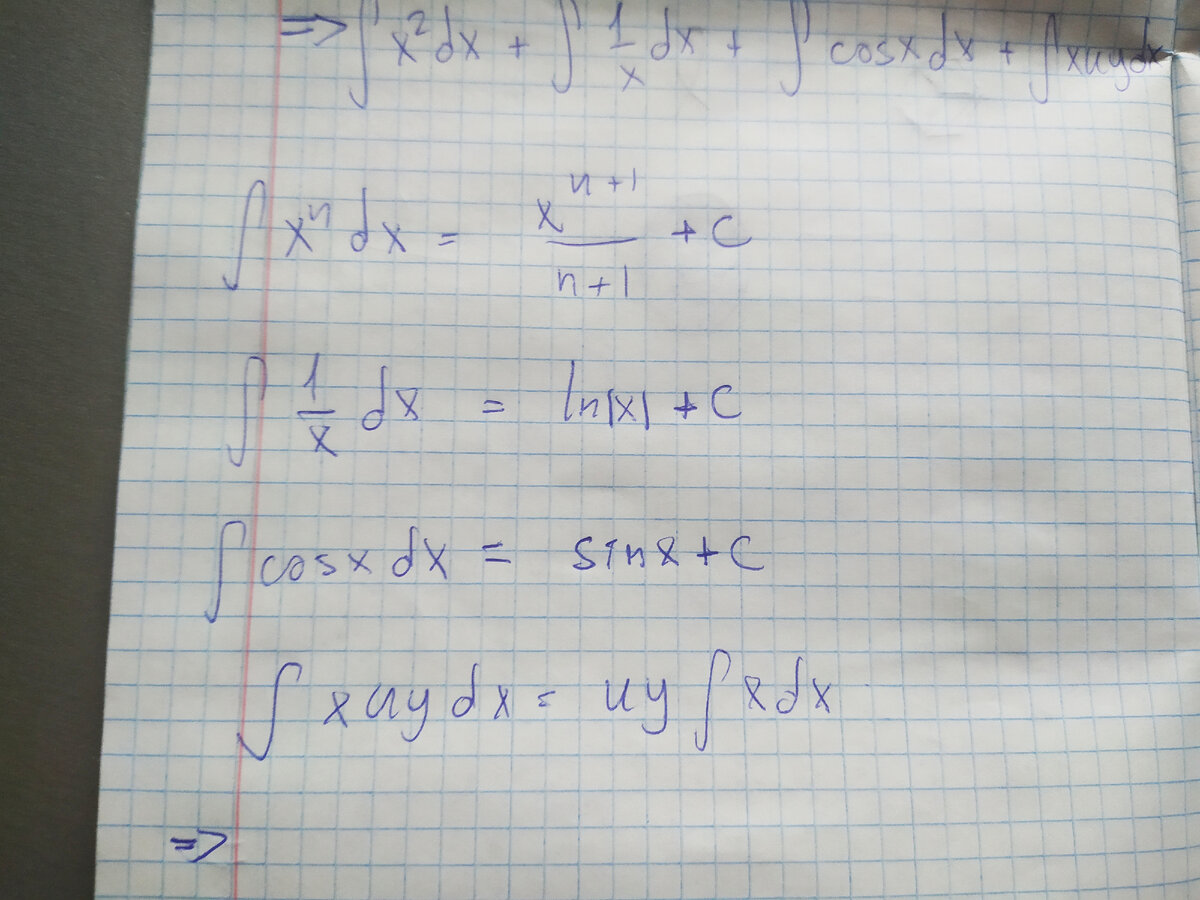 => ∫ x² dx + ∫ 1/x dx + ∫ cosx dx + ∫ xuy dx
∫ xⁿ dx = xⁿ⁺¹/(n+1) + C
∫ 1/x dx = ln|x| + C
∫ cosx dx = sinx + C
∫ xuy dx = uy ∫ x dx
=>